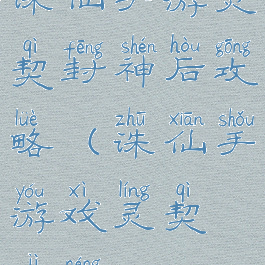 诛仙手游灵
qì fēng shén hòu gōng
契封神后攻
lüè zhū xiān shǒu
略（诛仙手
yóu xì líng qì
游戏灵契